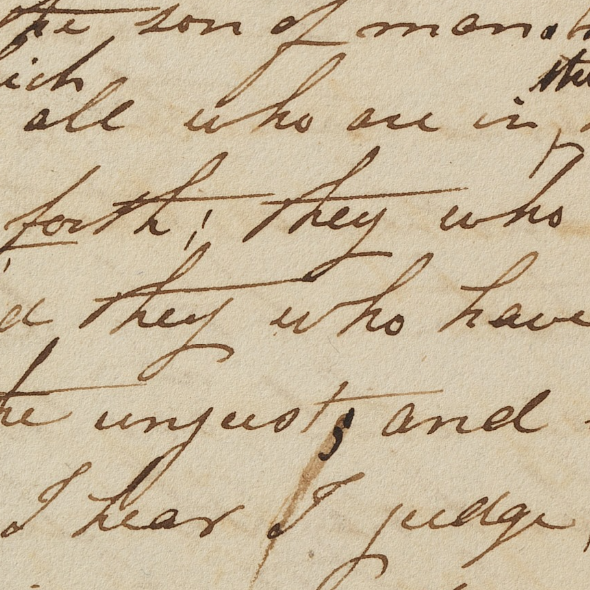 the son of man
the
all who are in
forth; they who
they who have
the unjust, and
I hear I judge